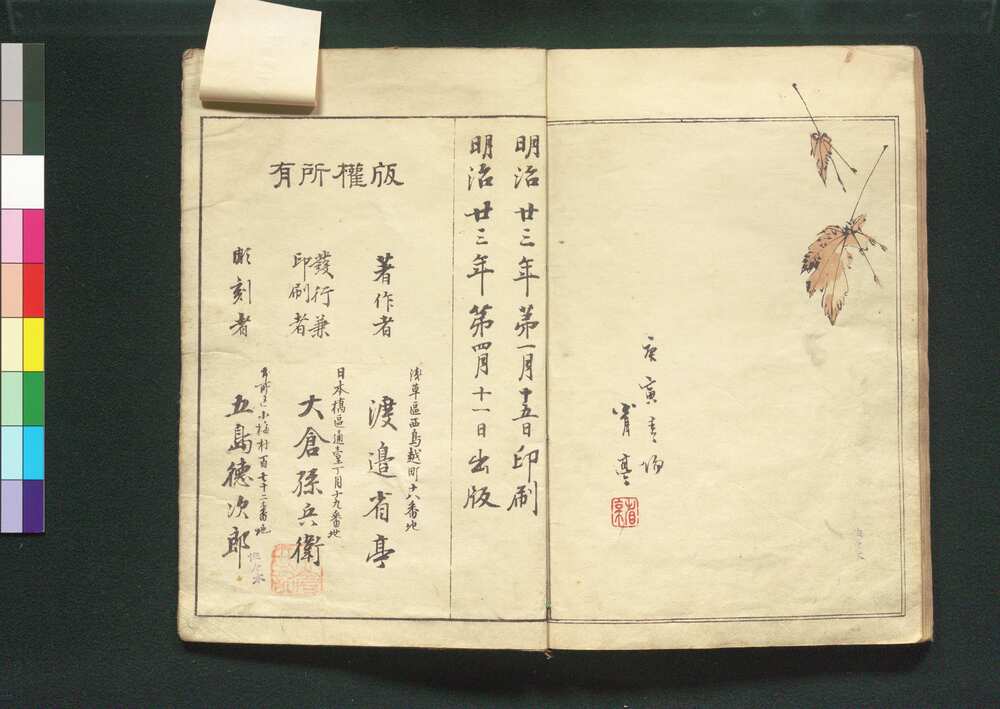 庚寅春
省亭
省亭
明治廿三年第一月十五日印刷
明治廿三年第四月十一日出版
版權所有
著作者
淺草區西鳥越町十八番地
渡邉省亭
發行兼
印刷者
日本橋區通壹丁目十九番地
大倉孫兵衛
彫刻者
小梅村百七十二番地
五島德次郎